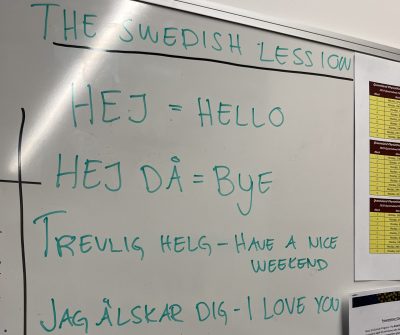 THE SWEDISH LESSION
HEJ = HELLO
HEJ DÅ = BYE
TREVLIG HELG - HAVE A NICE
WEEKEND
JAG ÄLSKAR DIG - I LOVE YOU